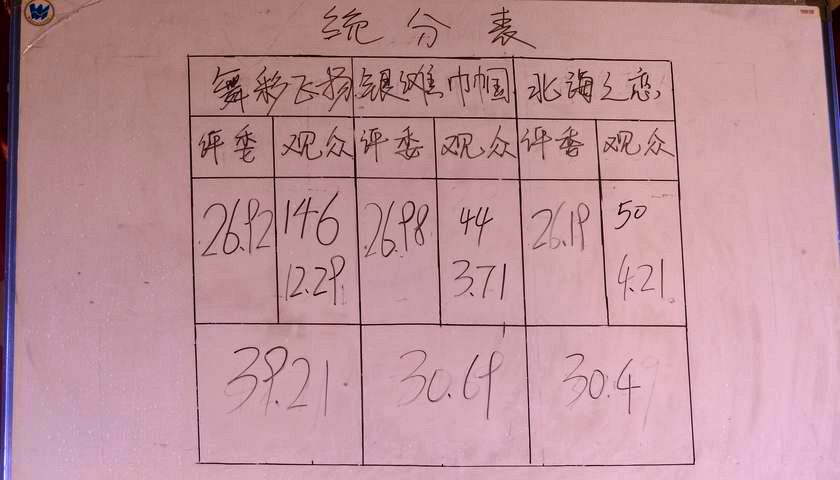 统分表
舞彩飞扬 银滩巾帼 北海之恋
评委 观众 评委 观众 评委 观众
26.92 146 26.98 44 26.19 50
12.29 3.71 4.21
39.21 30.69 30.4